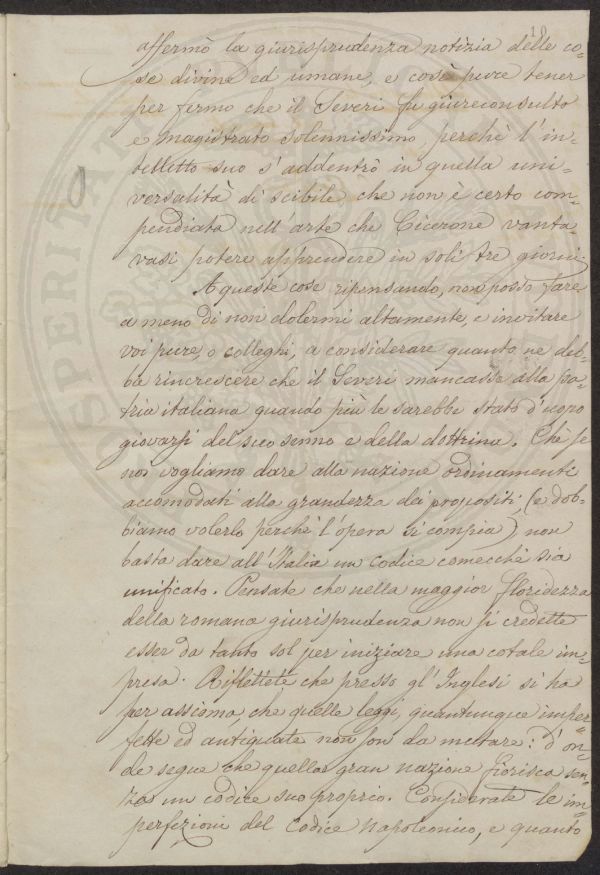 18
affermò la giurisprudenza notizia delle co=
se divine ed umane, e così pure tener
per fermo che il Severi fu giureconsulto
e magistrato solennissimo, perchè l'in=
telletto suo s'addentrò in quella uni=
versalità di scibile che non è certo com=
pendiata nell'arte che Cicerone vanta=
vasi potere apprendere in soli tre giorni.
A queste cose ripensando, non posso fare
a meno di non dolermi altamente, e invitare
voi pure, o colleghi, a considerare quanto ne deb=
ba rincrescere che il Severi mancasse alla pa=
tria italiana quando più le sarebbe stato d'uopo
giovarsi del suo senno e della dottrina. Chè se
noi vogliamo dare alla nazione ordinamenti
accomodati alla grandezza dei propositi, (e dob=
biamo volerlo perchè l'opera si compia) non
basta dare all'Italia un codice comecchè sia
unificato. Pensate che nella maggior floridezza
della romana giurisprudenza non si credette
esser da tanto sol per iniziare una cotale im=
presa. Riflettete che presso gl'Inglesi si ha
per assioma che quelle leggi, quantunque imper=
fette ed antiquate non son da mutare: d'on=
de segue che quella gran nazione fiorisca sen=
za un codice suo proprio. Considerate le im=
perfezioni del Codice Napoleonico, e quanto
PROSPERITAT